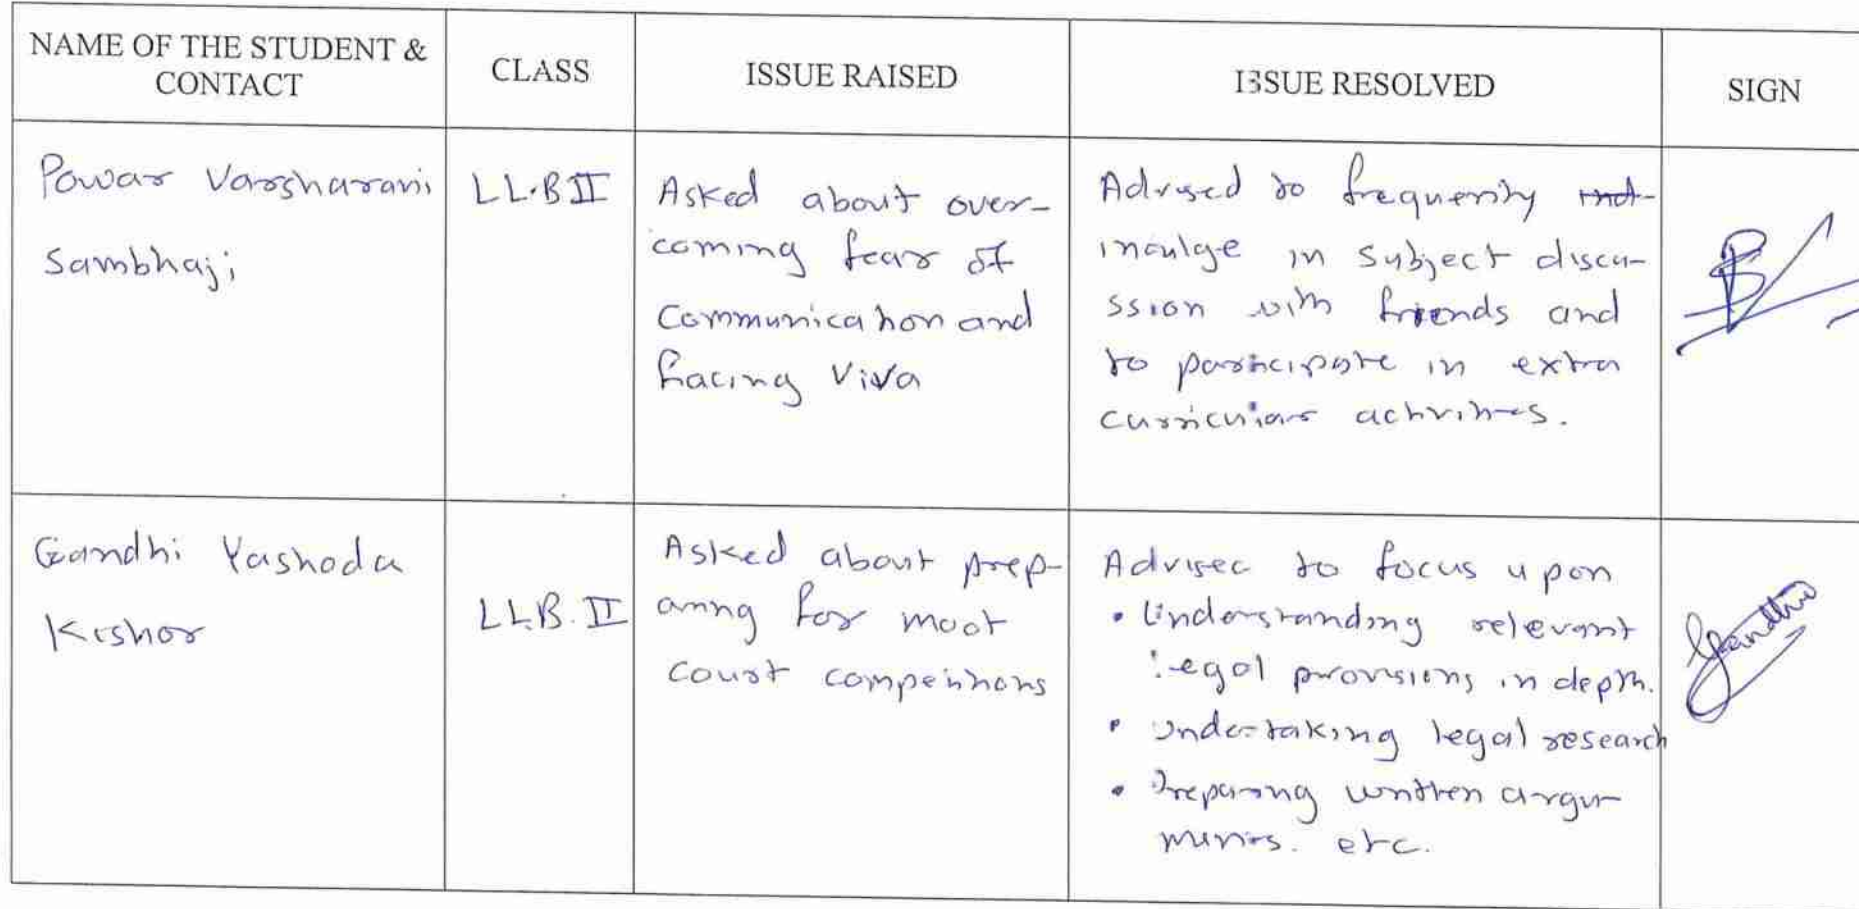 NAME OF THE STUDENT &
CONTACT
CLASS
ISSUE RAISED
ISSUE RESOLVED
SIGN
Powar Varsharani
Sambhaji
LL.B II
Asked about over-
coming fear of
Communication and
facing Viva
Advised to frequently
indulge in subject discu-
ssion with friends and
to participate in extra
curricular activities.
Gandhi Yashoda
Kishor
LL.B. II
Asked about prep-
aring for moot
court competitions
Advised to focus upon
• Understanding relevant
legal provisions in depth.
• Undertaking legal research
• Preparing written argu-
ments. etc.
Gandhi